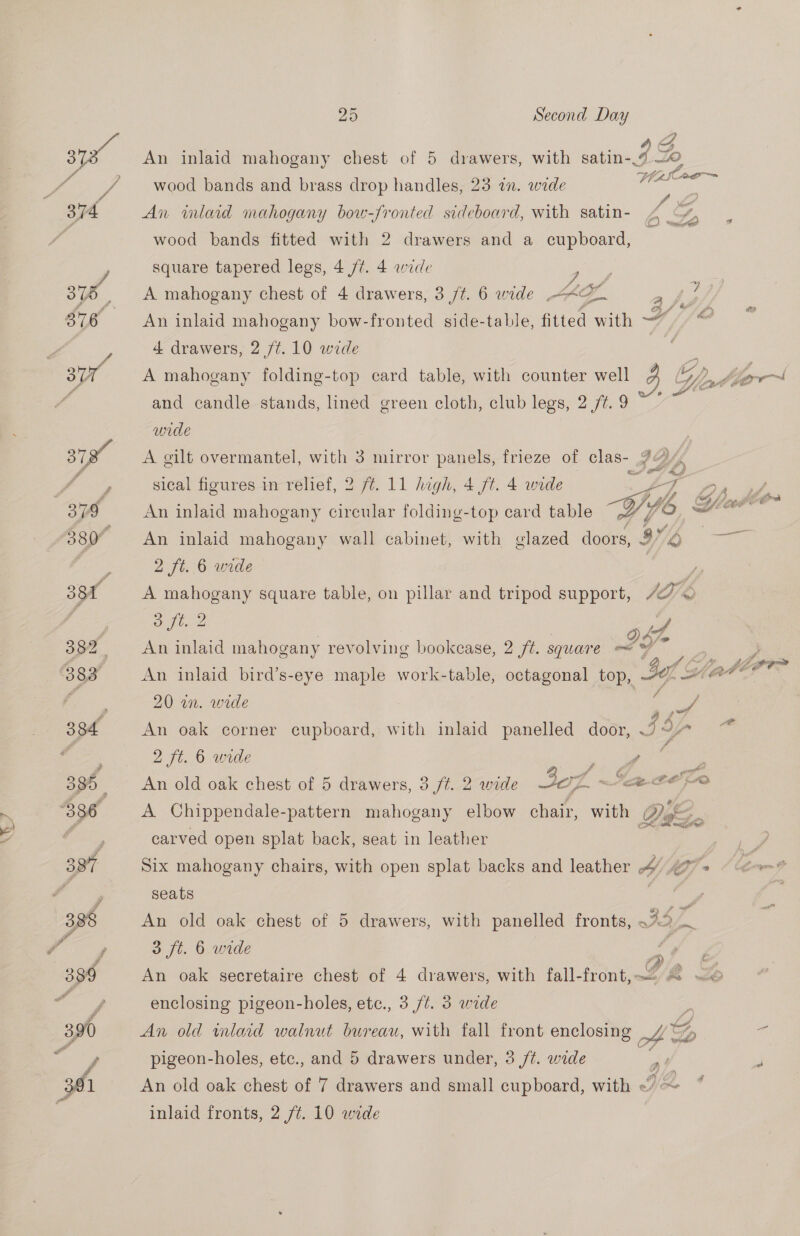 25 Second Day
373 An inlaid mahogany chest of 5 drawers, with satin-
wood bands and brass drop handles, 23 in. wide
374 An inlaid mahogany bow-fronted sideboard, with satin-
wood bands fitted with 2 drawers and a cupboard,
square tapered legs, 4 ft. 4 wide
375 A mahogany chest of 4 drawers, 3 ft. 6 wide
376 An inlaid mahogany bow-fronted side-table, fitted with
4 drawers, 2 ft. 10 wide
377 A mahogany folding-top card table, with counter well
and candle stands, lined green cloth, club legs, 2 ft. 9
wide
378 A gilt overmantel, with 3 mirror panels, frieze of clas-
sical figures in relief, 2 ft. 11 high, 4 ft. 4 wide
379 An inlaid mahogany circular folding-top card table
380 An inlaid mahogany wall cabinet, with glazed doors,
2 ft. 6 wide
381 A mahogany square table, on pillar and tripod support,
3 ft. 2
382 An inlaid mahogany revolving bookcase, 2 ft. square
383 An inlaid bird's-eye maple work-table, octagonal top,
20 in. wide
384 An oak corner cupboard, with inlaid panelled door,
2 ft. 6 wide
385 An old oak chest of 5 drawers, 3 ft. 2 wide
386 A Chippendale-pattern mahogany elbow chair, with
carved open splat back, seat in leather
387 Six mahogany chairs, with open splat backs and leather
seats
388 An old oak chest of 5 drawers, with panelled fronts,
3 ft. 6 wide
389 An oak secretaire chest of 4 drawers, with fall-front,
enclosing pigeon-holes, etc., 3 ft. 3 wide
390 An old inlaid walnut bureau, with fall front enclosing
pigeon-holes, etc., and 5 drawers under, 3 ft. wide
391 An old oak chest of 7 drawers and small cupboard, with
inlaid fronts, 2 ft. 10 wide